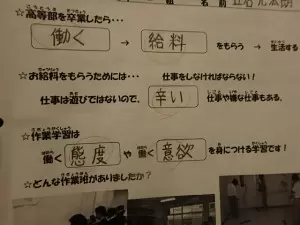 組 名前
☆高等部を卒業したら…
働く → 給料 をもらう → 生活する
☆お給料をもらうためには… 仕事をしなければならない!
仕事は遊びではないので、 辛い 仕事や嫌な仕事もある。
☆作業学習は
働く 態度 や 働く 意欲 を身につける学習です!
☆どんな作業班がありましたか?